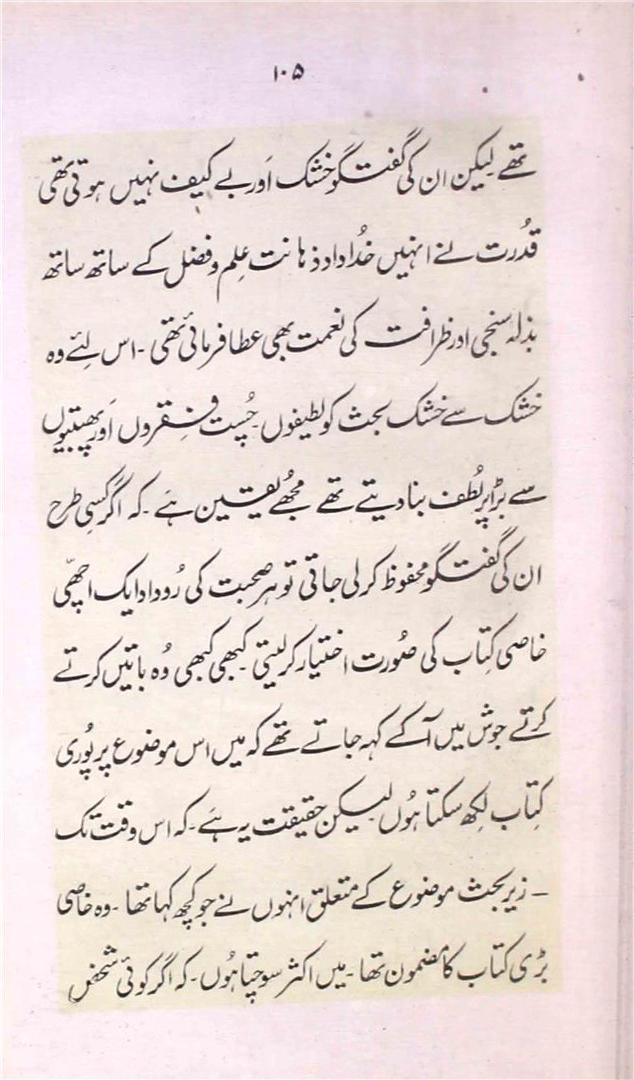 ۱۰۵
تھے لیکن ان کی گفتگو خشک اَور بے کیف نہیں ہوتی تھی
قدُرت نے انہیں خُداداد ذہانت عِلم و فضل کے ساتھ ساتھ
بذلہ سنجی اور ظرافت کی نعمت بھی عطا فرمائی تھی - اس لِئے وہ
خشک سے خشک بحث کو لطیفوں - چُست فِقروں اَور پھبتیوں
سے بڑا پر لُطف بنا دیتے تھے مجھے یقین ہے - کہ اگر کسِی طرح
ان کی گفتگو محفوظ کر لی جاتی تو ہر صحبت کی رُوداد ایک اچھّی
خاصی کِتاب کی صُورت اختیار کر لیتی - کبھی کبھی وُہ باتیں کرتے
کرتے جوش میں آ کے کہہ جاتے تھے کہ میں اس موضوع پر پُوری
کِتاب لِکھ سکتا ہُوں لیکن حقیقت یہ ہَے - کہ اس وقت تک
- زیر بحث موضوع کے متعلق انہوں نے جو کچھ کہا تھا - وہ خاصی
بڑی کتاب کا مضمون تھا - میں اکثر سوچتا ہُوں - کہ اگر کوئی شخص